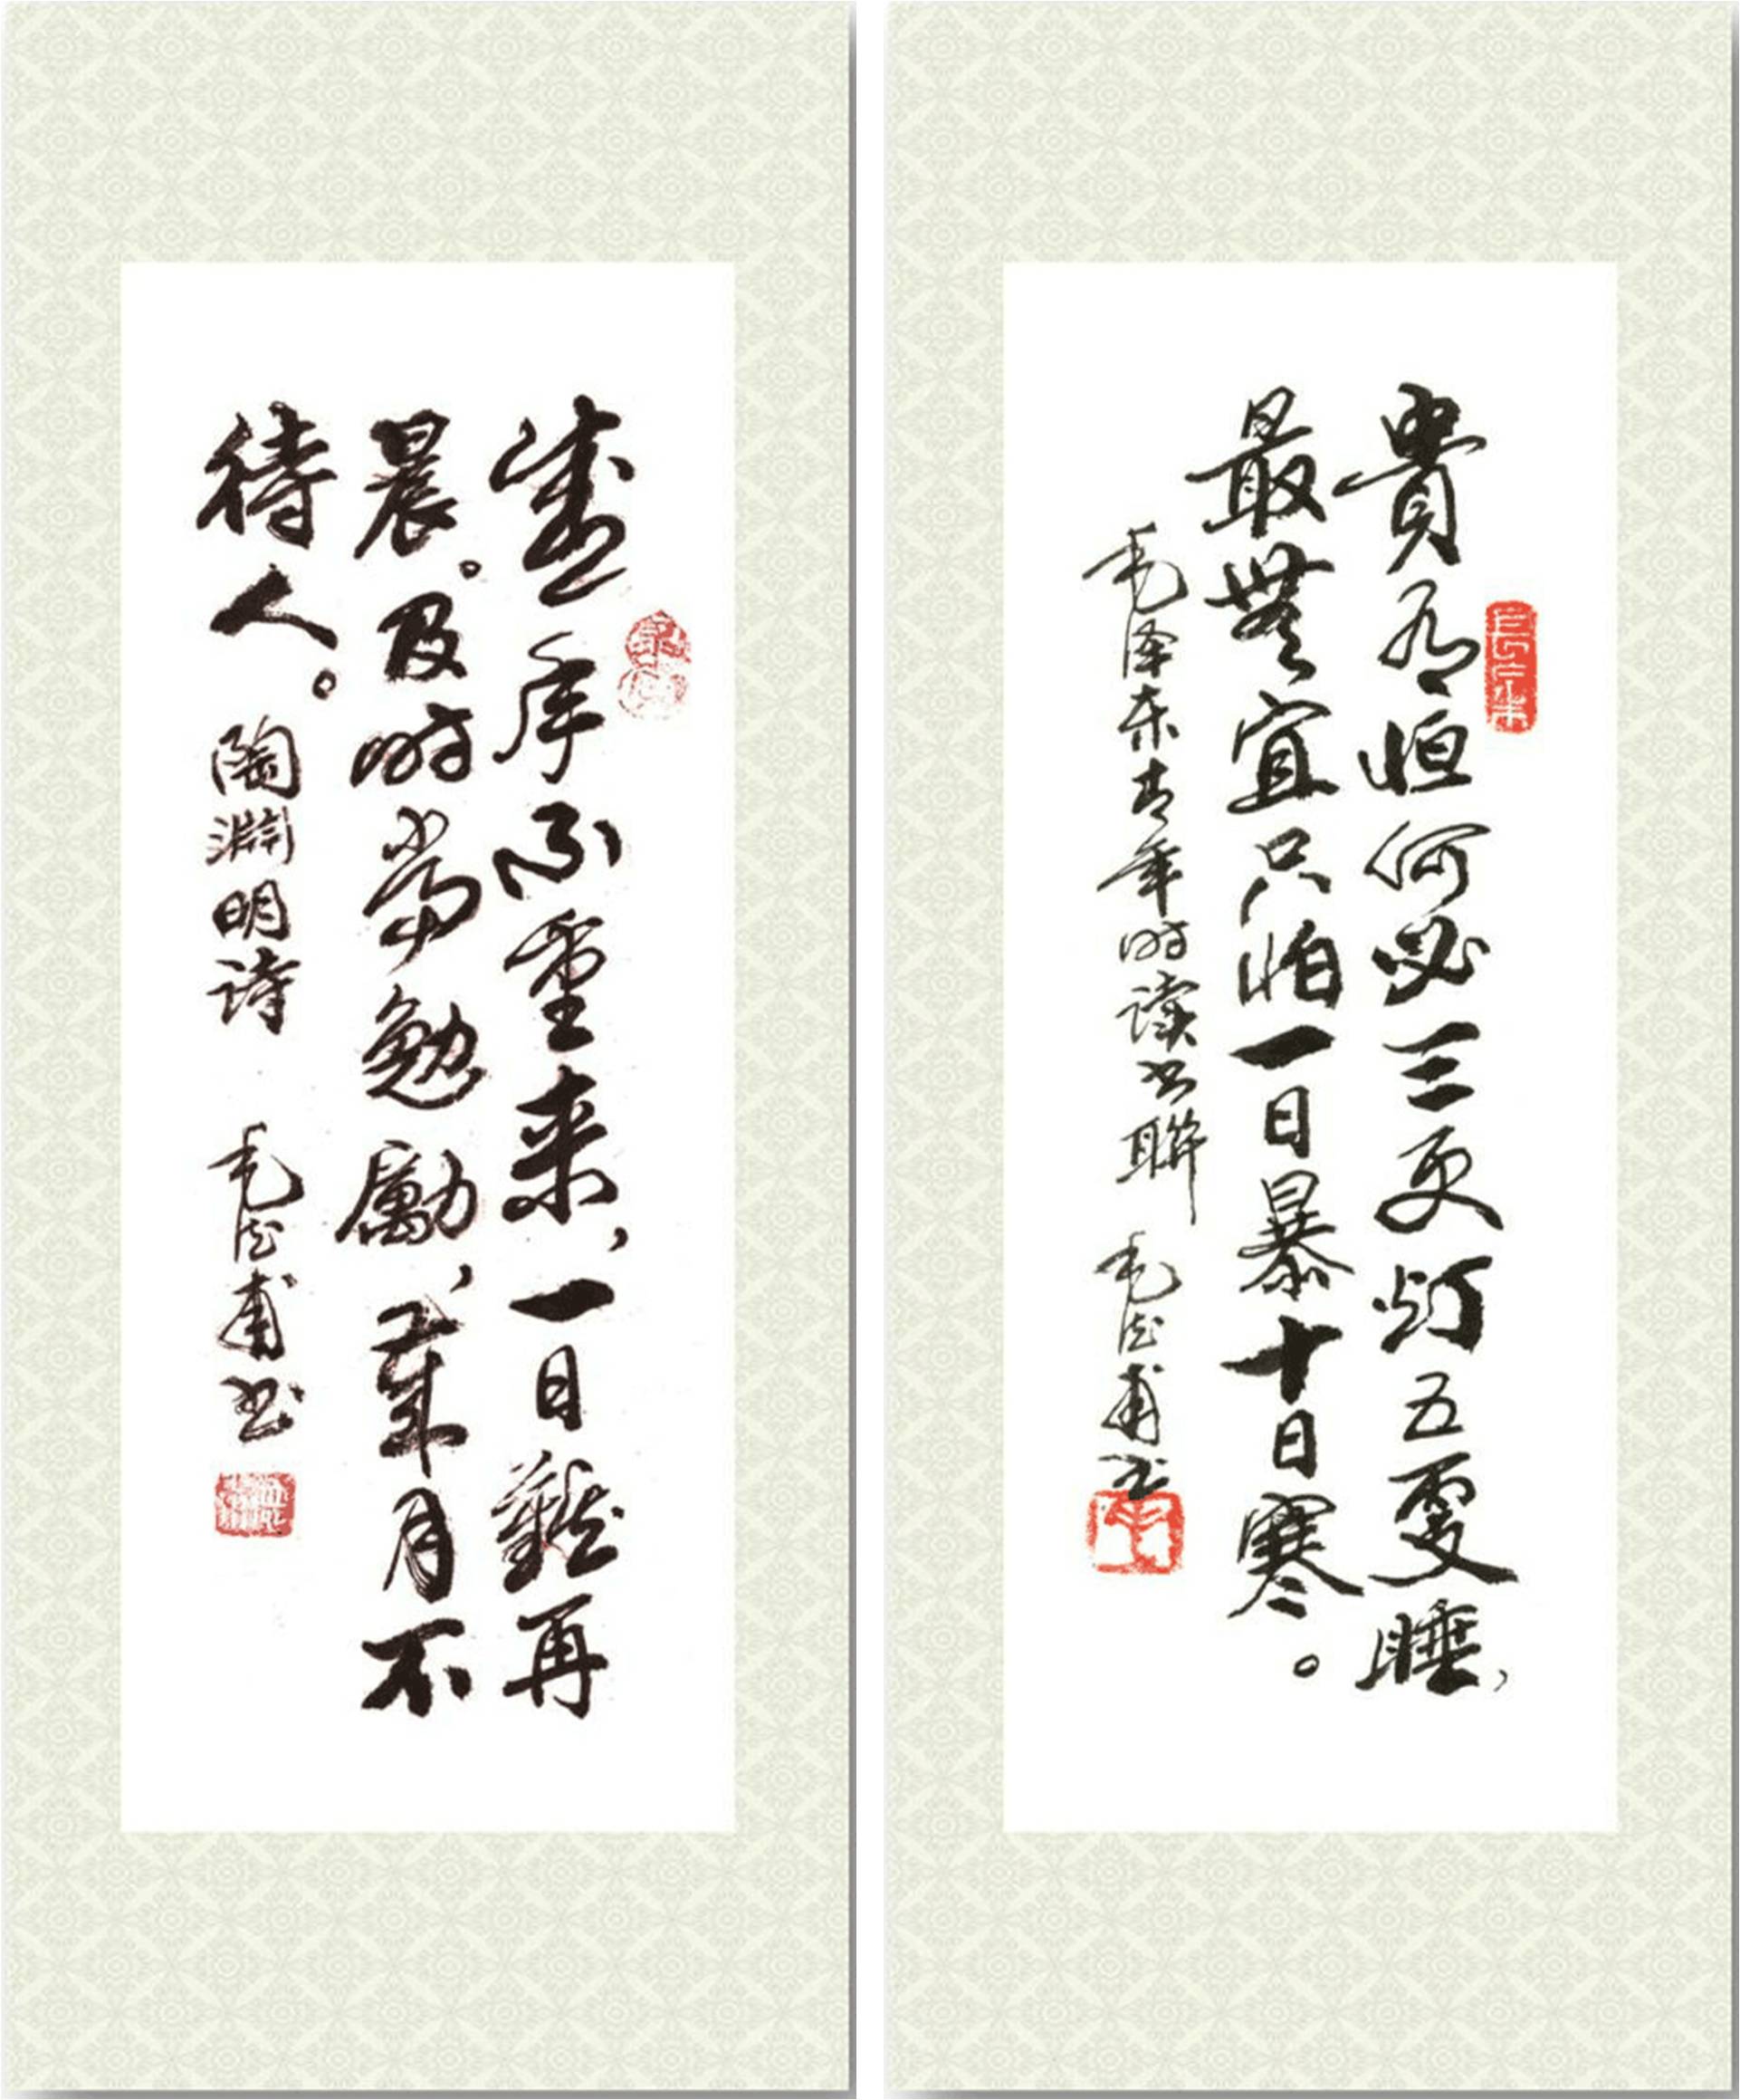 貴有恒何必三更灯五更睡，
最無宜只怕一日暴十日寒。
毛泽东青年时读书聯 毛甫书
盛年不重来，一日難再
晨。及时當勉勵，歲月不
待人。陶渊明诗 毛甫书